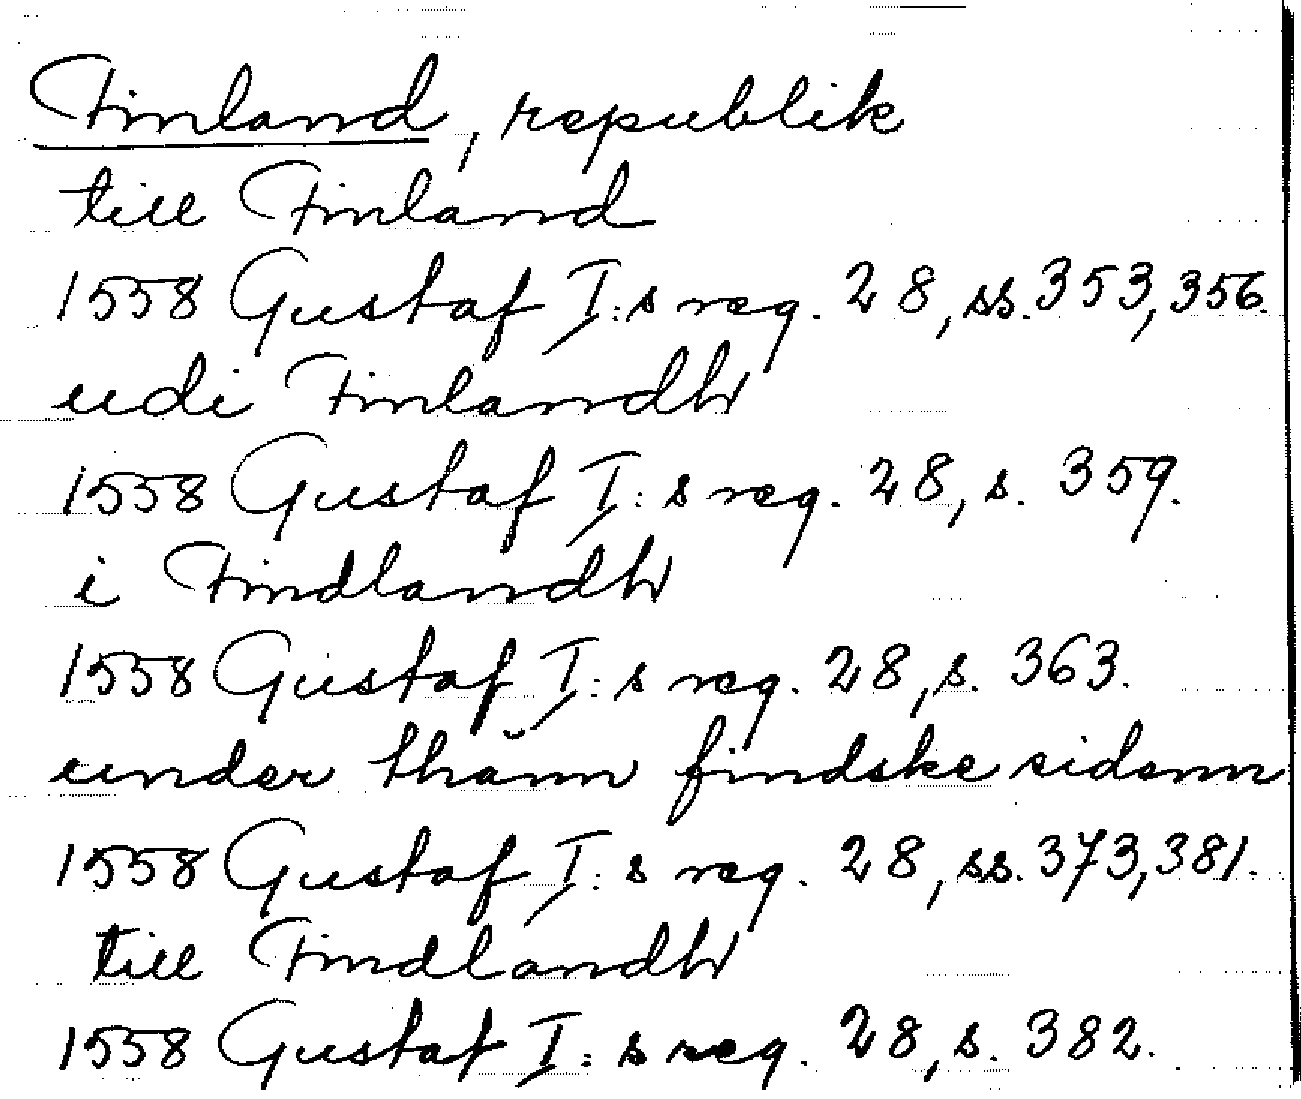 Finland, republik
till Finland
1558 Gustaf I:s reg. 28, ss. 353, 356.
udi Finlandh
1558 Gustaf I:s reg. 28, s. 359.
i Findlandh
1558 Gustaf I:s reg. 28, s. 363.
under thänn findske sidenn
1558 Gustaf I:s reg. 28, ss. 373, 381.
till Findlandh
1558 Gustaf I:s reg. 28, s. 382.